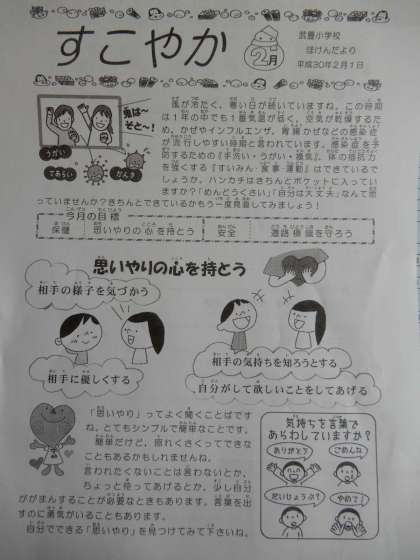 すこやか
2月
武豊小学校
ほけんだより
平成30年2月1日
鬼は~
そと~!
うがい
てあらい
かんき
風が冷たく、寒い日が続いていますね。この時期
は1年の中でも1番気温が低く、空気が乾燥するた
め、かぜやインフルエンザ、胃腸かぜなどの感染症
が流行しやすい時期と言われています。感染症を予
防するための『手洗い・うがい・換気』、体の抵抗力
を強くする『すいみん・食事・運動』はできているで
しょうか。ハンカチはきちんとポケットに入ってい
ますか?「めんどうくさい」「自分は大丈夫」なんて思
っていませんか?きちんとできているかもう一度見直してみましょう!
今月の目標
保健
思いやりの心を持とう
安全
道路標識を守ろう
思いやりの心を持とう
相手の様子を気づかう
相手に優しくする
相手の気持ちを知ろうとする
自分がして欲しいことをしてあげる
「思いやり」ってよく聞くことばです
ね。とてもシンプルで簡単なことです。
簡単だけど、照れくさくってできな
いこともあるかもしれませんね。
言われたくないことは言わないとか、
ちょっと待ってあげるとか、少し自分
ががまんすることが必要なときもあります。言葉を出
すのに勇気がいることもあります。
自分でできる「思いやり」を見つけてみて下さいね。
気持ちを言葉で
あらわしていますか?
ありがとう
ごめんね
だいじょうぶ?
やめて!